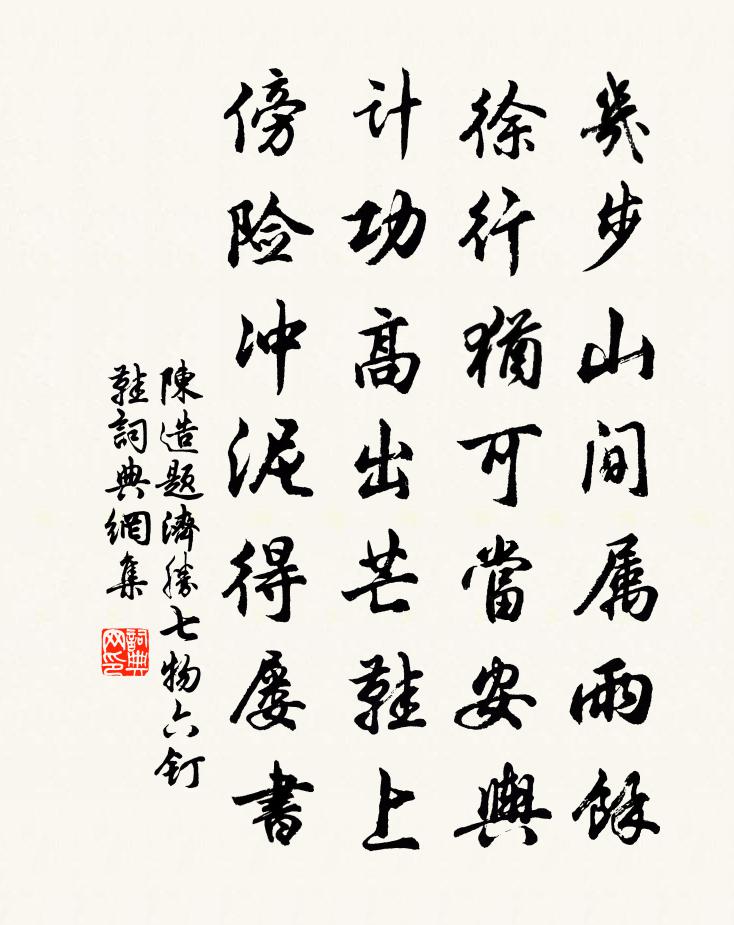 幾步山間属雨餘
徐行猶可當安輿
计功高出芒鞋上
傍险冲泥得屡書
陳造題濟勝七物六釘
鞋詞典網集
詞典网印